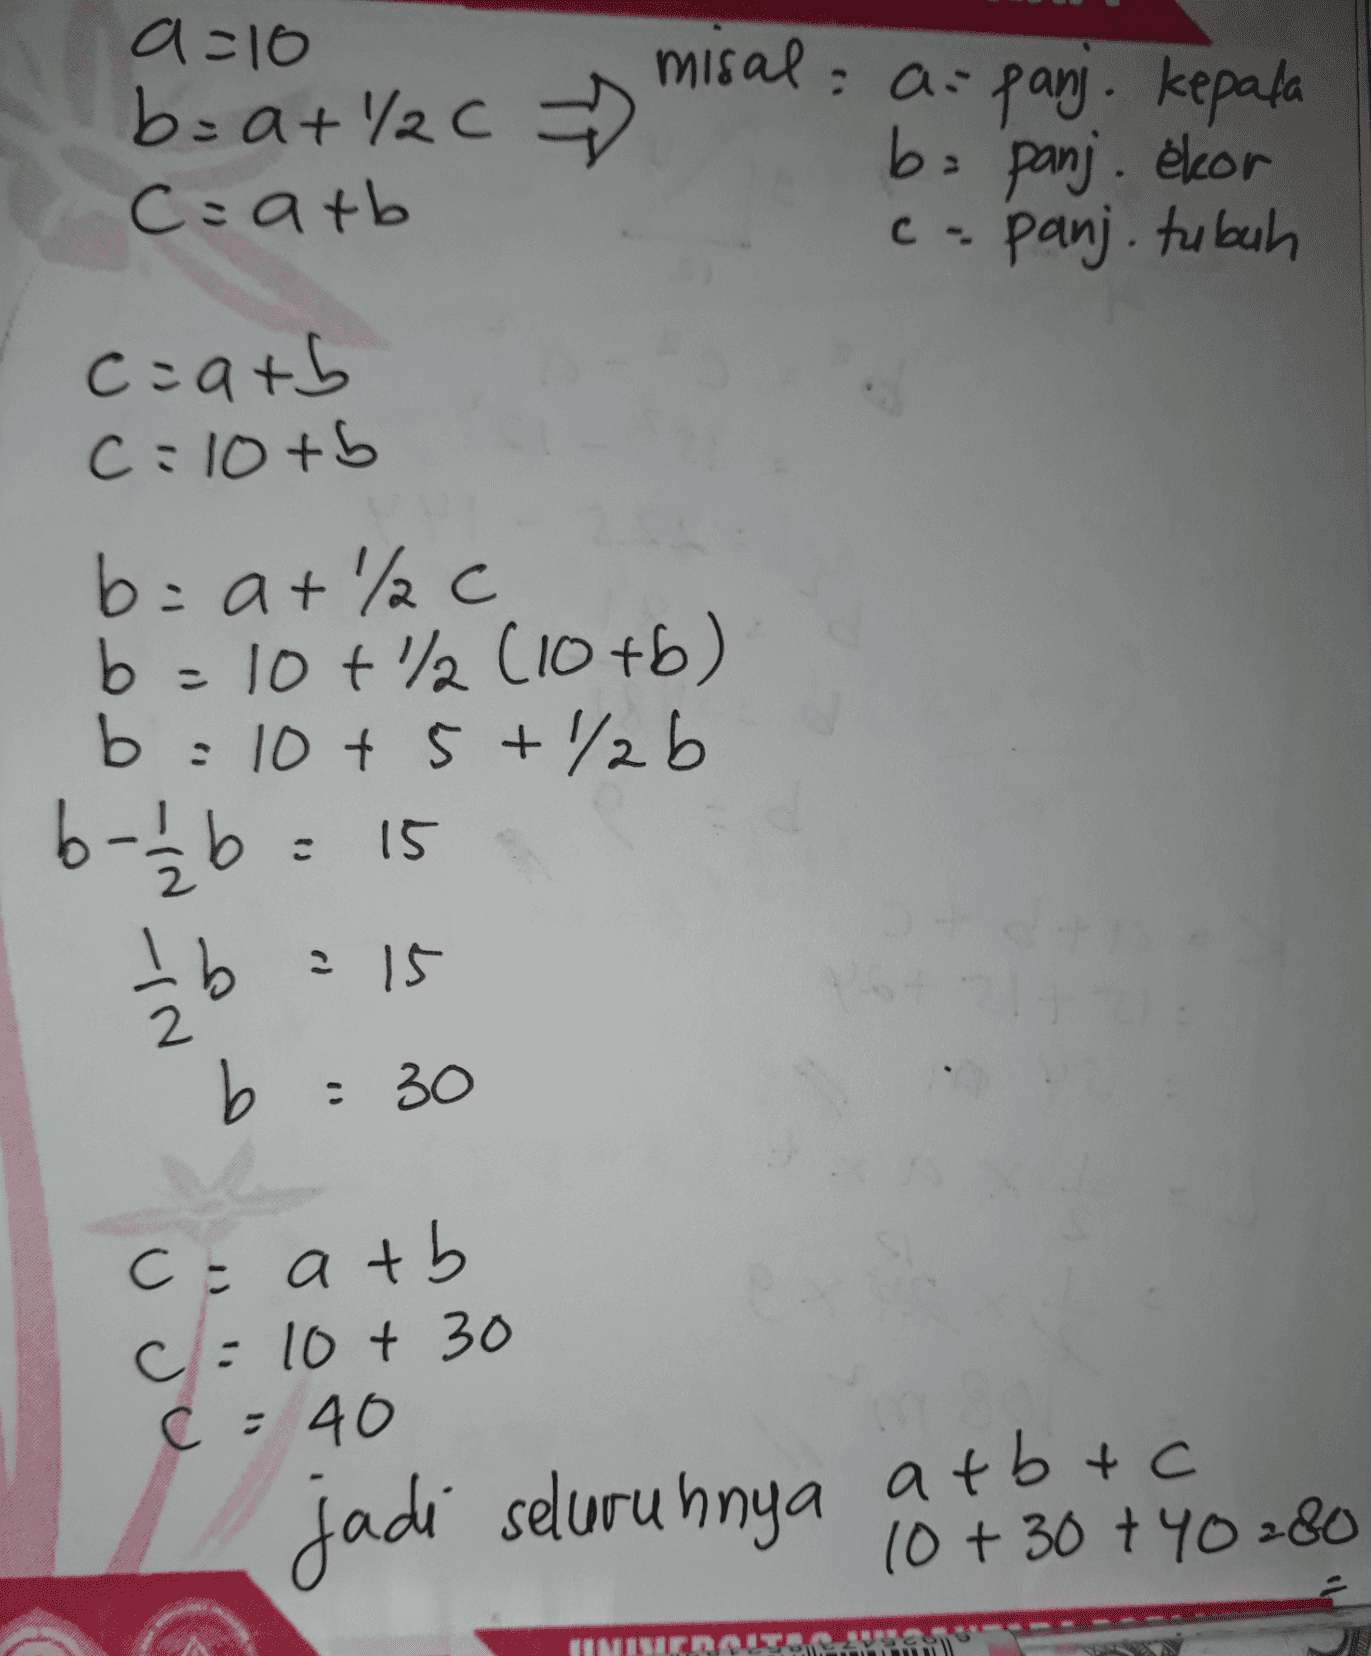 a=10
b=a+1/2 c ⇒ misal = a= panj. kepala
b= panj. ekor
c=a+b
c= panj. tubuh
c=a+b
c=10+b
b=a+1/2 c
b=10+1/2 (10+b)
b=10+5+1/2 b
b-1/2 b = 15
1/2 b = 15
b = 30
c = a+b
c = 10+30
c = 40
jadi seluruhnya a+b+c
10+30+40=80